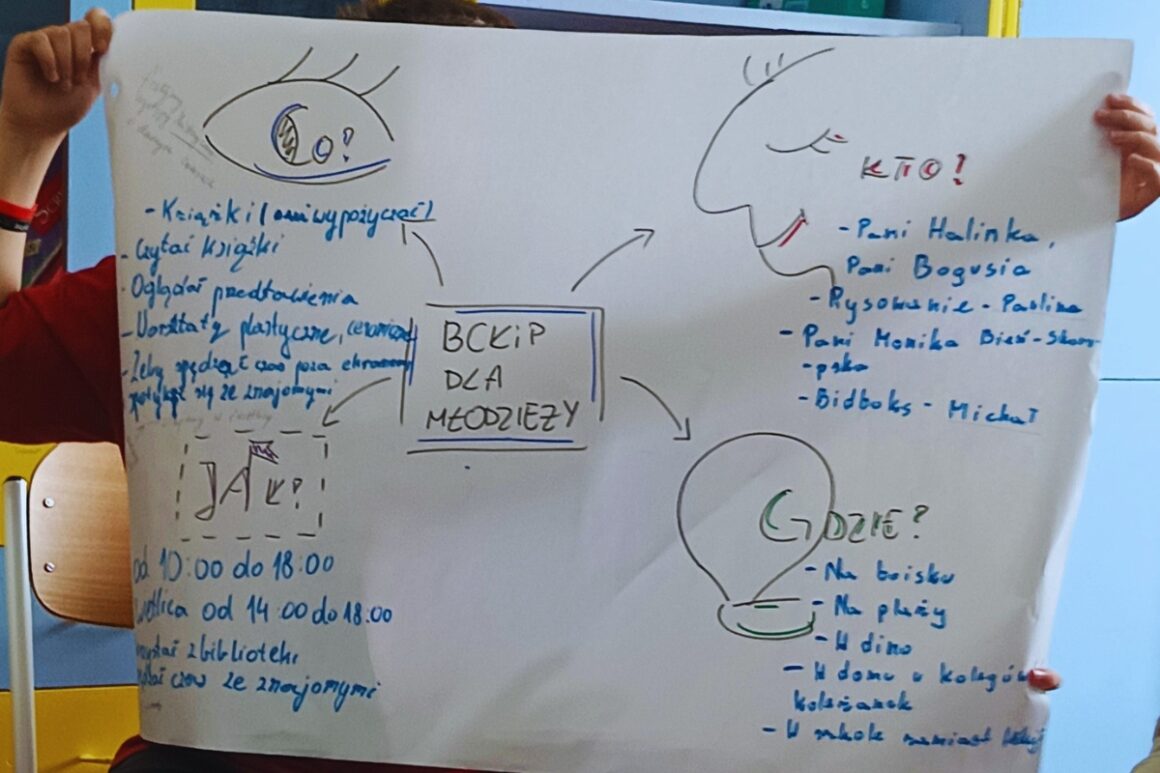 Co?
- Książki (
wypożyczać)
- Czytać książki
- Oglądać predtawienia
- Worsttaty plastyczne,
- Żeby spędzać czas poza ekranem
się ze znajomymi
BCKiP
DLA
MŁODZIEŻY
KTO?
- Pani Halinka,
Pani Bogusia
- Rysowanie - Paulina
- Pani Monika Bień-Skoro-
-pska
- Bidboks - Michał
JAK?
od 10:00 do 18:00
od 14:00 do 18:00
z bibliotek
czas ze znajomymi
GDZIE?
- Na boisku
- Na plaży
- W dino
- W domu u kolegów
koleżanek
- W szkole zamiast